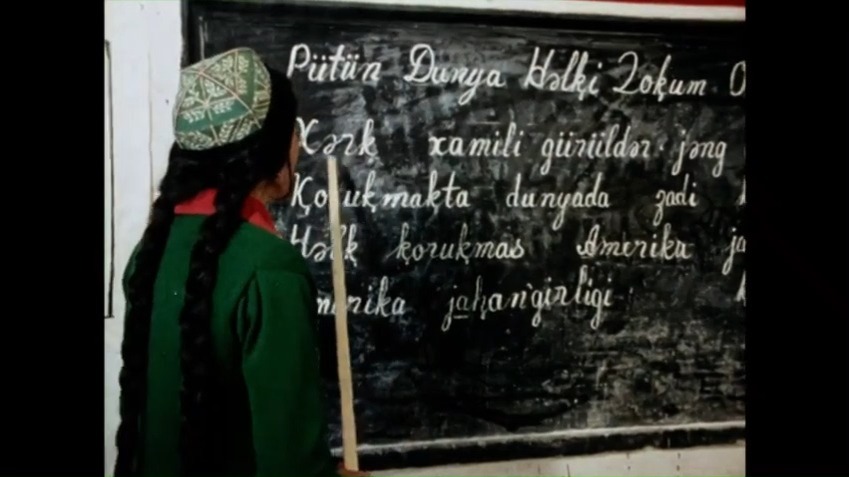 Pütün Dunya Həlķi Zoķum O
Xərķ xamili gürüldər jəng
Ķozuķmaķta dunyada zadi
Həlķ ķorukmas Amerika ja
merika jaḥan'girligi